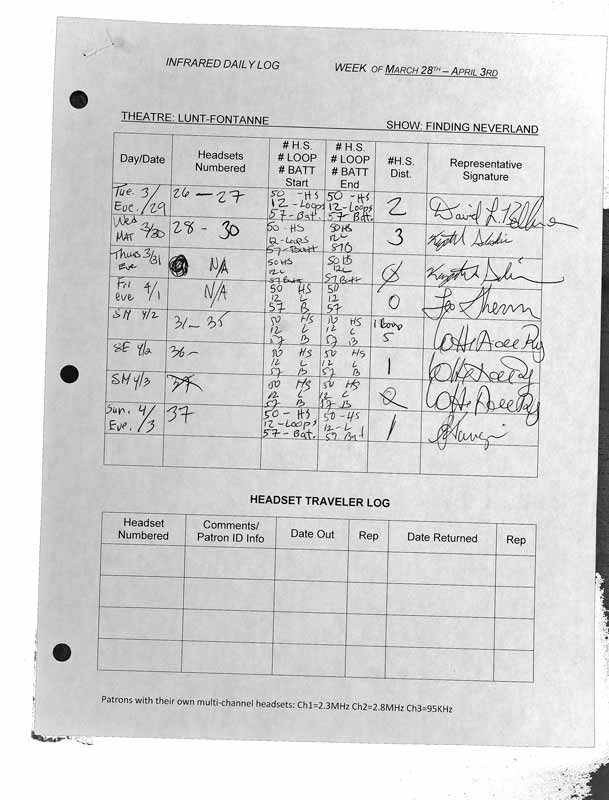 INFRARED DAILY LOG WEEK OF MARCH 28TH – APRIL 3RD
THEATRE: LUNT-FONTANNE SHOW: FINDING NEVERLAND
Day/Date Headsets Numbered # H.S. # LOOP # BATT Start # H.S. # LOOP # BATT End #H.S. Dist. Representative Signature
Tue. 3/29 Eve. 26 – 27 50 - HS 12 - Loops 57 - Bat. 50 - HS 12 - Loops 57 Batt. 2 David L.
Wed MAT 3/30 28 - 30 50 - HS 12 - Loops 57 - Batt 50 HS 12L 57B 3
Thurs 3/31 Eve N/A 50 HS 12L 57 Batt 50 HS 12L 57B 0
Fri eve 4/1 N/A 50 HS 12 L 57 B 50 12 57 0 Leo Sherin
SM 4/2 31 - 35 50 HS 12 L 57 B 50 HS 12 L 57 B 1 Loop 5
SE 4/2 36 - 50 HS 12 L 57 B 50 HS 12 L 57 B 1
SM 4/3 50 HS 12 L 57 B 50 HS 12 L 57 B 0
Sun. 4/3 Eve. 37 50 - HS 12 - Loops 57 - Bat. 50 - HS 12 - L 57 Bat 1
HEADSET TRAVELER LOG
Headset Numbered Comments/ Patron ID Info Date Out Rep Date Returned Rep
Patrons with their own multi-channel headsets: Ch1=2.3MHz Ch2=2.8MHz Ch3=95KHz